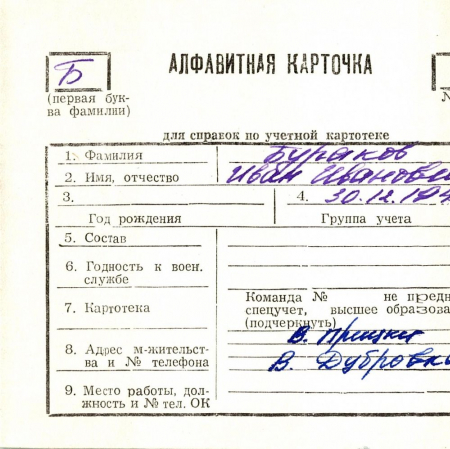 Б АЛФАВИТНАЯ КАРТОЧКА
(первая бук-
ва фамилии)
для справок по учетной картотеке
1. Фамилия Бураков
2. Имя, отчество Иван Иванович
3. 4. 30.12.19
Год рождения Группа учета
5. Состав
6. Годность к воен.
службе
7. Картотека
Команда № не предн
спецучет, высшее образова
(подчеркнуть)
8. Адрес м-жительст-
ва и № телефона
В. Прыски
В. Дубровка
9. Место работы, дол-
жность и № тел. ОК